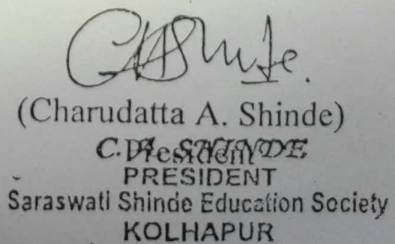 CAShinde.
(Charudatta A. Shinde)
President
C. A. SHINDE
PRESIDENT
Saraswati Shinde Education Society
KOLHAPUR